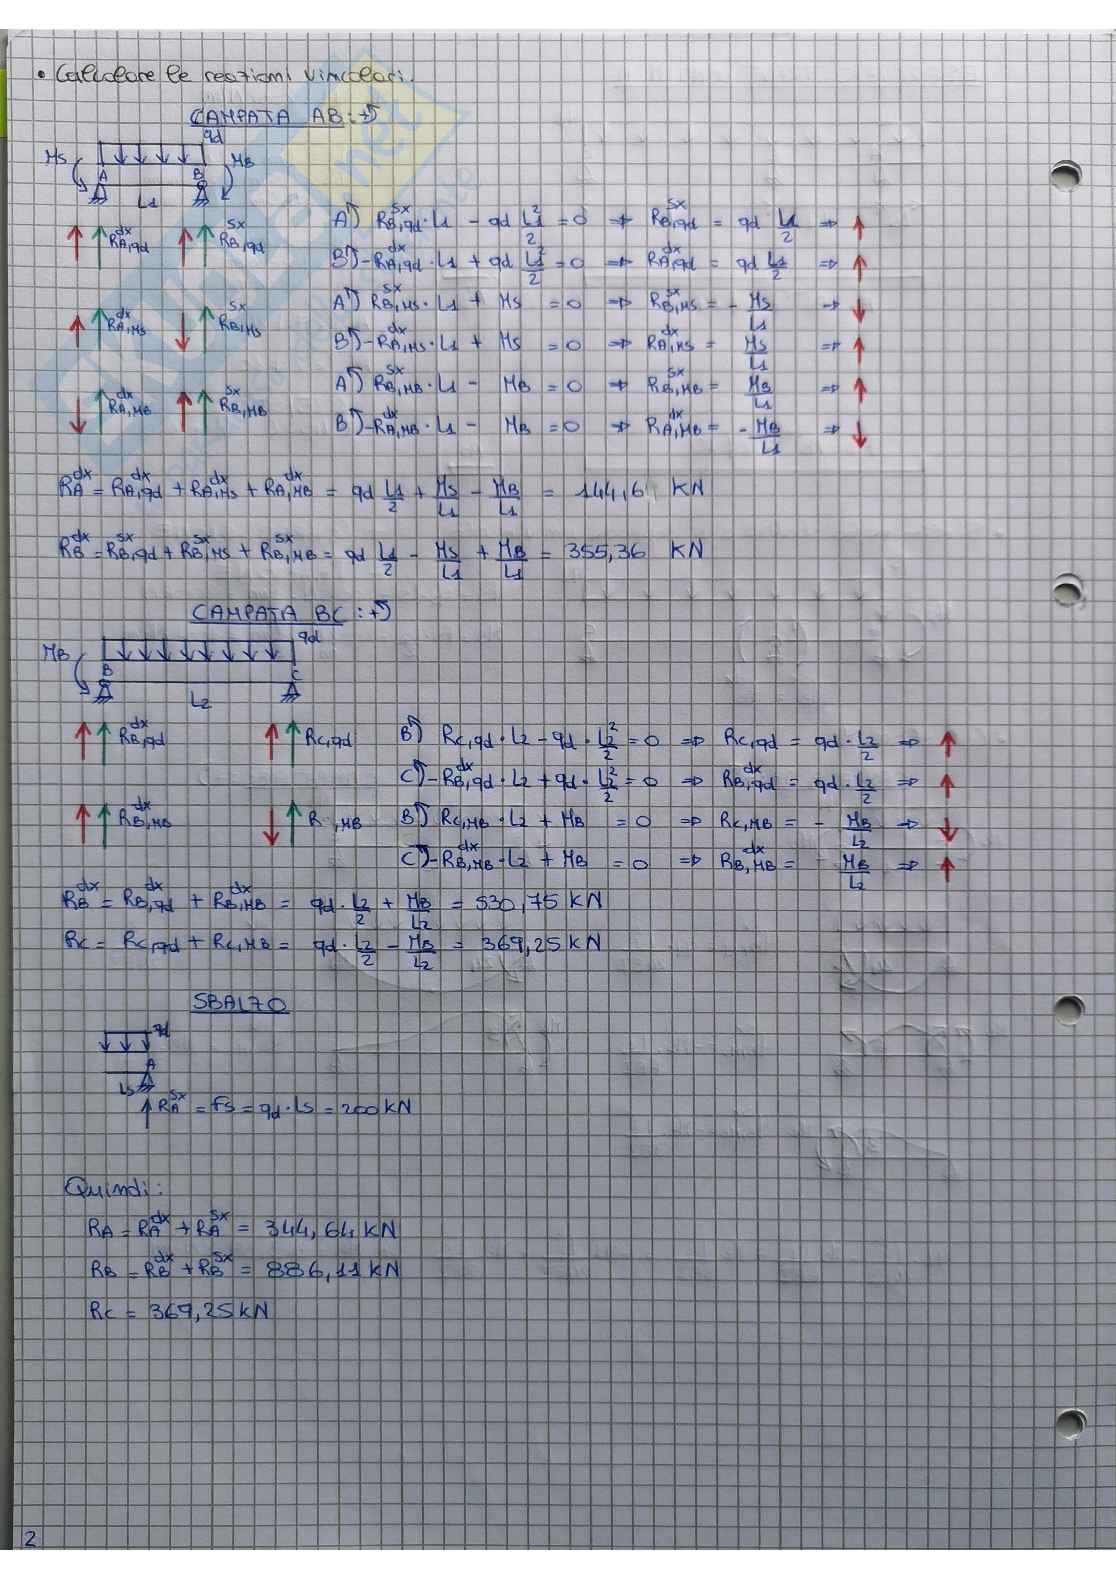 • Calcolare le reazioni vincolari.
CAMPATA AB: +↺
qd
Ms MB
A B
L1
RA,qd^dx RB,qd^sx
A↺) RB,qd^sx · L1 - qd L1²/2 = 0 ⇒ RB,qd^sx = qd L1/2 ⇒ ↑
B↺) -RA,qd^dx · L1 + qd L1²/2 = 0 ⇒ RA,qd^dx = qd L1/2 ⇒ ↑
RA,Ms^dx RB,Ms^sx
A↺) RB,Ms^sx · L1 + Ms = 0 ⇒ RB,Ms^sx = - Ms/L1 → ↓
B↺) -RA,Ms^dx · L1 + Ms = 0 ⇒ RA,Ms^dx = Ms/L1 ⇒ ↑
RA,MB^dx RB,MB^sx
A↺) RB,MB^sx · L1 - MB = 0 ⇒ RB,MB^sx = MB/L1 ⇒ ↑
B↺) -RA,MB^dx · L1 - MB = 0 ⇒ RA,MB^dx = - MB/L1 ⇒ ↓
RA^dx = RA,qd^dx + RA,Ms^dx + RA,MB^dx = qd L1/2 + Ms/L1 - MB/L1 = 144,6 KN
RB^dx = RB,qd^sx + RB,Ms^sx + RB,MB^sx = qd L1/2 - Ms/L1 + MB/L1 = 355,36 KN
CAMPATA BC: +↺
qd
MB
B C
L2
RB,qd^dx RC,qd
B↺) RC,qd · L2 - qd · L2²/2 = 0 ⇒ RC,qd = qd · L2/2 ⇒ ↑
C↺) -RB,qd^dx · L2 + qd · L2²/2 = 0 ⇒ RB,qd^dx = qd · L2/2 ⇒ ↑
RB,MB^dx R ,MB
B↺) RC,MB · L2 + MB = 0 ⇒ RC,MB = - MB/L2 ⇒ ↓
C↺) -RB,MB^dx · L2 + MB = 0 ⇒ RB,MB^dx = MB/L2 ⇒ ↑
RB^dx = RB,qd^dx + RB,MB^dx = qd · L2/2 + MB/L2 = 530,75 KN
RC = RC,qd + RC,MB = qd · L2/2 - MB/L2 = 369,25 KN
SBALZO
qd
A
Ls
RA^sx = Fs = qd · Ls = 200 KN
Quindi:
RA = RA^dx + RA^sx = 344,64 KN
RB = RB^dx + RB^sx = 886,11 KN
RC = 369,25 KN
2